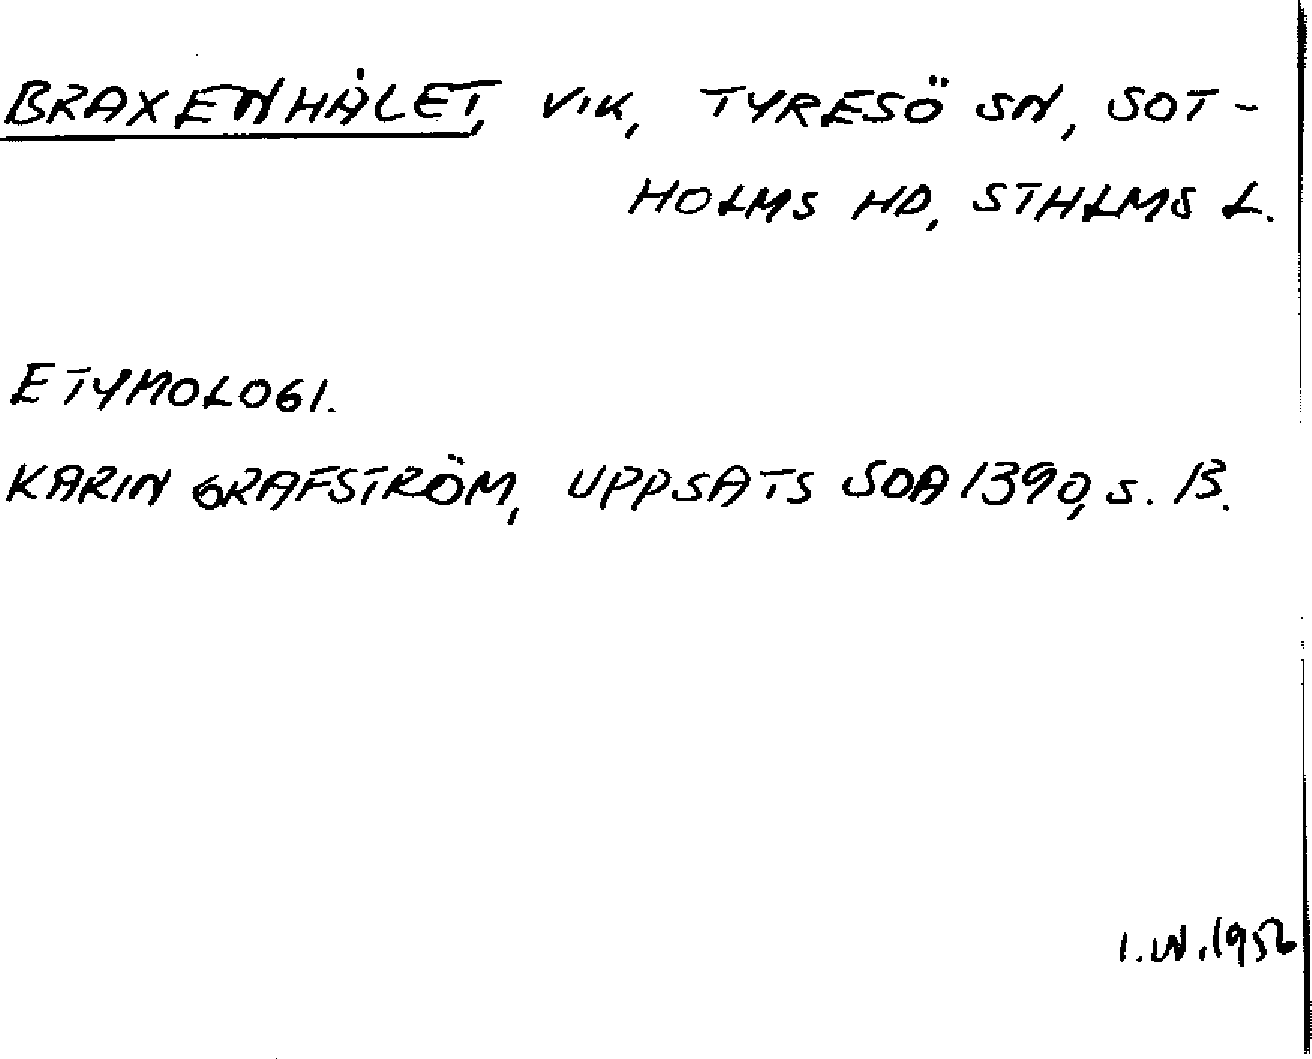 BRAXENHÅLET, VIK, TYRESÖ SN, SOT-
HOLMS HD, STHLMS L.
ETYMOLOGI.
KARIN GRAFSTRÖM, UPPSATS SOA 1390, S. 13.
I.W. 1956